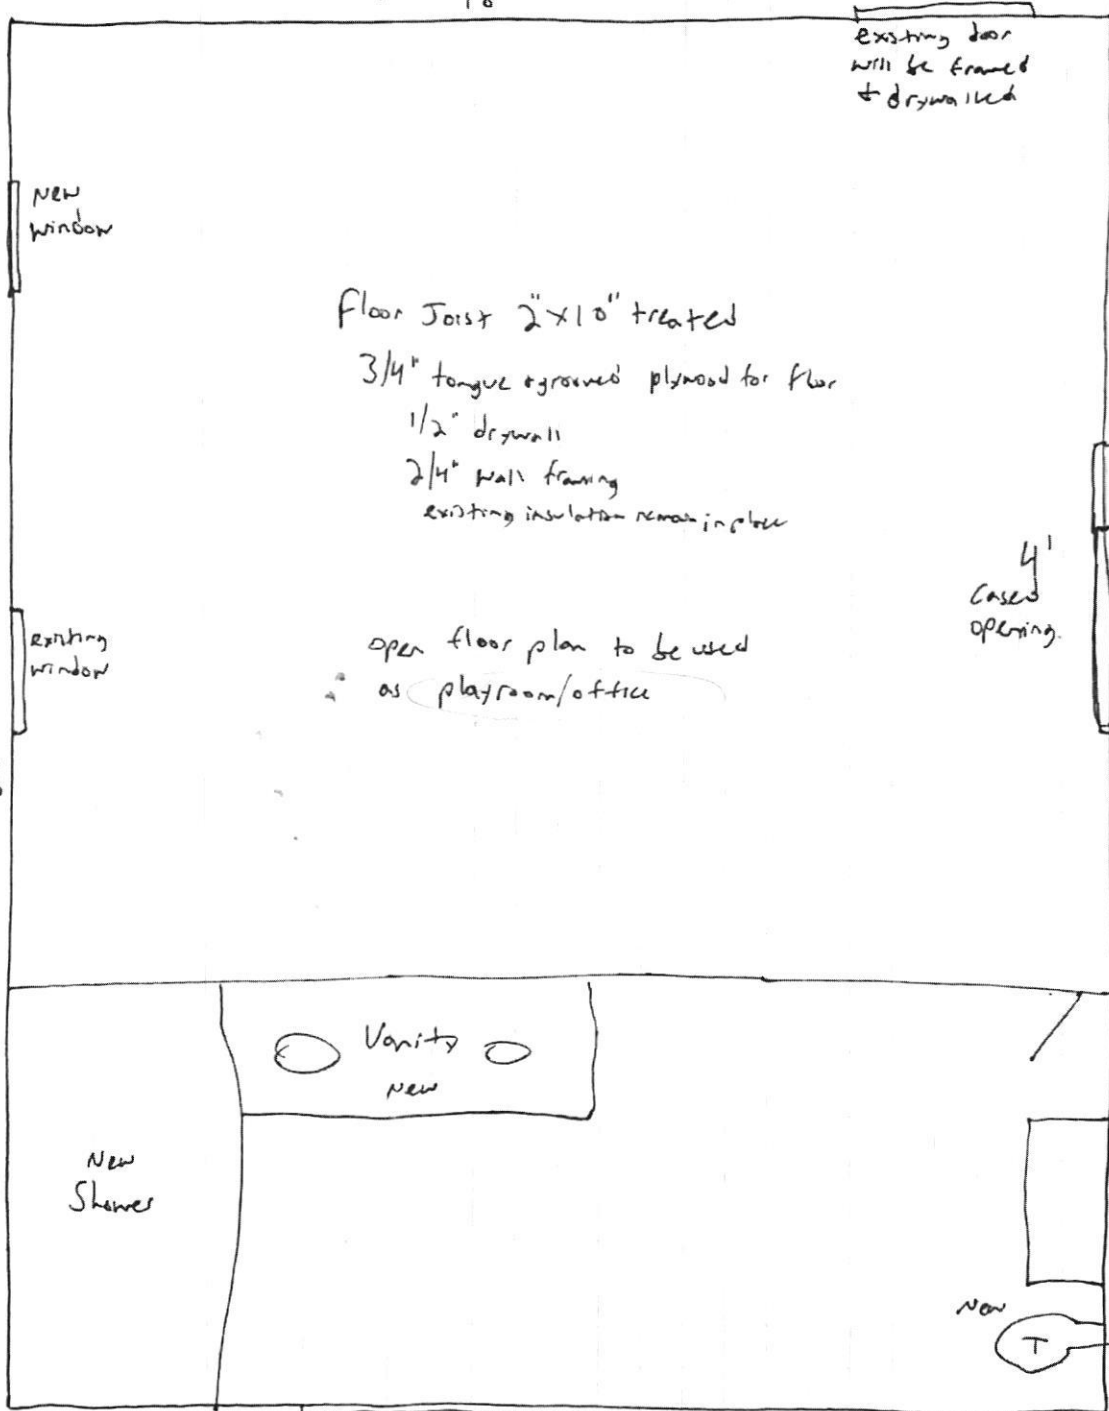 existing door
will be framed
+ drywalled
New
window
Floor Joist 2"x10" treated
3/4" tongue + grooved plywood for floor
1/2" drywall
2/4" wall framing
existing insulation remain in place
4'
Cased
opening.
existing
window
open floor plan to be used
as playroom/office
Vanity
New
New
Shower
New
T